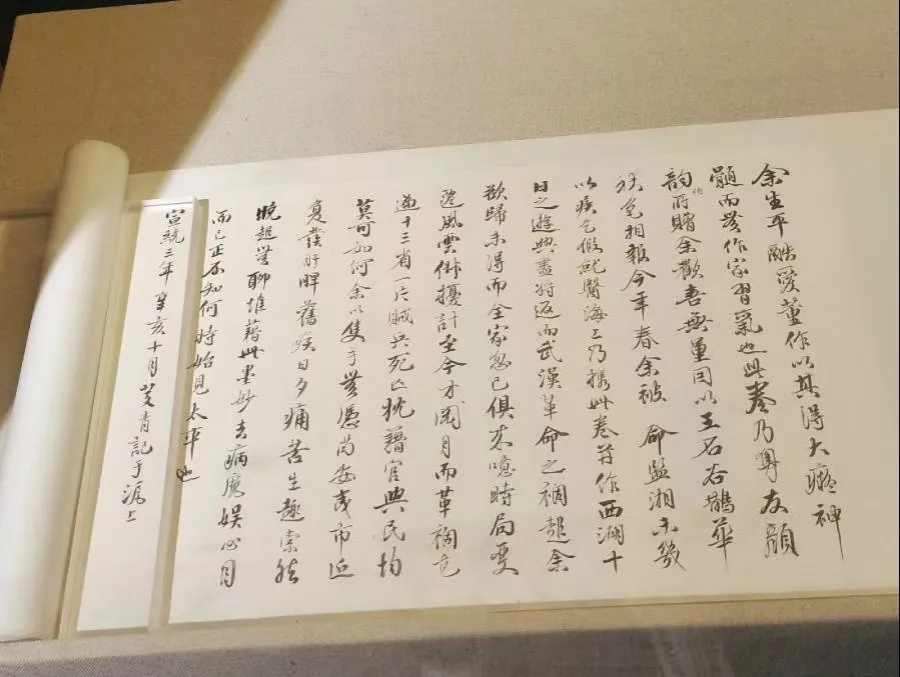 余生平酷愛董作以其得大癡神
髓而無作家習氣也此卷乃粵友顏
韵伯所贈余歡喜無量因以王石谷鵲華
秋色相報今年春余被命監湘未幾
以疾乞假就醫海上乃攜此卷并作西湖十
日之遊興盡將返而武漢革命之禍起余
欲歸未得而全家忽已俱來噫時局變
遷風雲俶擾計至今才閱月而革禍已
遍十三省一片賊兵死亡枕藉官與民均
莫可如何余以隻手無憑苟安滬市近
復發肝脾舊疾日夕痛苦生趣索然
晚起無聊惟藉此墨妙去病魔娛心目
而已正不知何時始見太平也
宣統三年辛亥十月芰青記于滬上